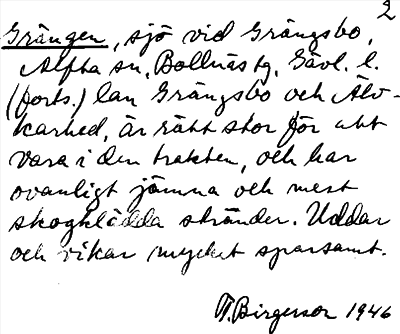 2
Grängen, sjö vid Grängsbo,
Alfta sn, Bollnäs tg, Gävl. l.
(forts.) lan Grängsbo och Älv-
karhed, är rätt stor för att
vara i den trakten, och har
ovanligt jämna och mest
skogklädda stränder. Uddar
och vikar mycket sparsamt.
T. Birgersson 1946